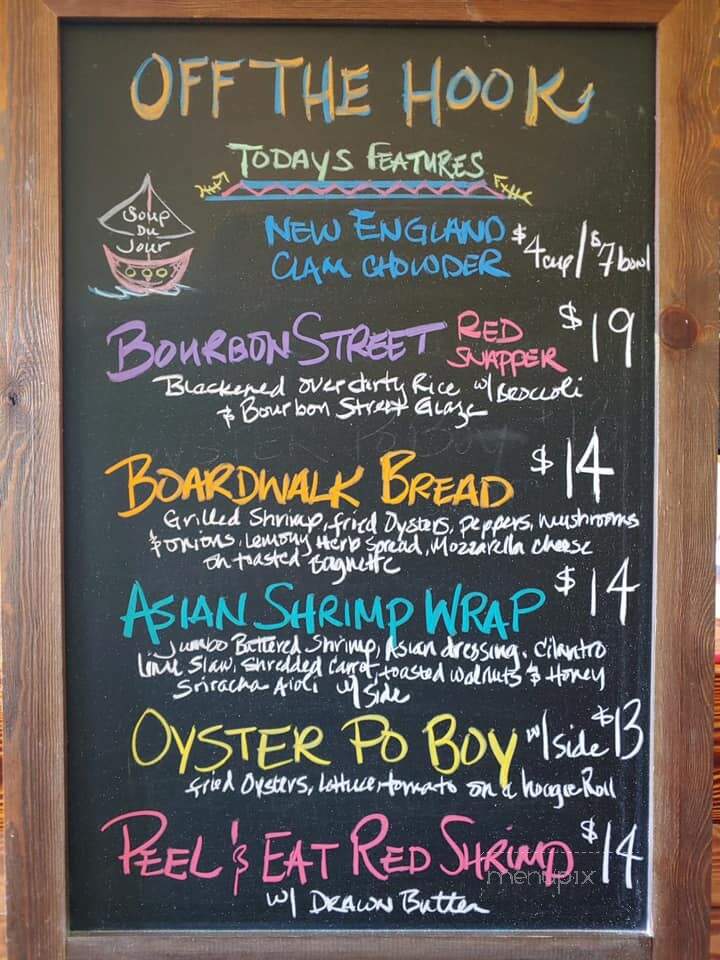 OFF THE HOOK
TODAYS FEATURES
Soup
Du
Jour
NEW ENGLAND
CLAM CHOWDER
$4 cup / $7 bowl
BOURBON STREET
RED
SNAPPER
$19
Blackened over dirty Rice w/ Broccoli
& Bourbon Street Glaze
BOARDWALK BREAD $14
Grilled Shrimp, fried Oysters, peppers, mushrooms
& onions, Lemony Herb Spread, Mozzarella cheese
on toasted Baguette
ASIAN SHRIMP WRAP $14
Jumbo Buttered Shrimp, Asian dressing, Cilantro
lime Slaw, Shredded Carrot, toasted walnuts & Honey
Sriracha Aioli w/ side
OYSTER PO BOY w/ side $13
fried Oysters, lettuce, tomato on a hoagie Roll
PEEL & EAT RED SHRIMP $14
w/ DRAWN Butter
menupix